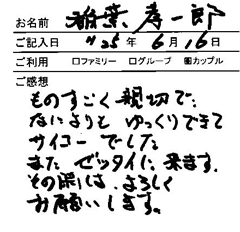 お名前 稲葉 孝一郎
ご記入日 '25年 6月 16日
ご利用 □ファミリー □グループ ▣カップル
ご感想
ものすごく親切で、
なによりも ゆっくりできて
サイコーでした
また ゼッタイに 来ます。
その際は よろしく
お願いします。